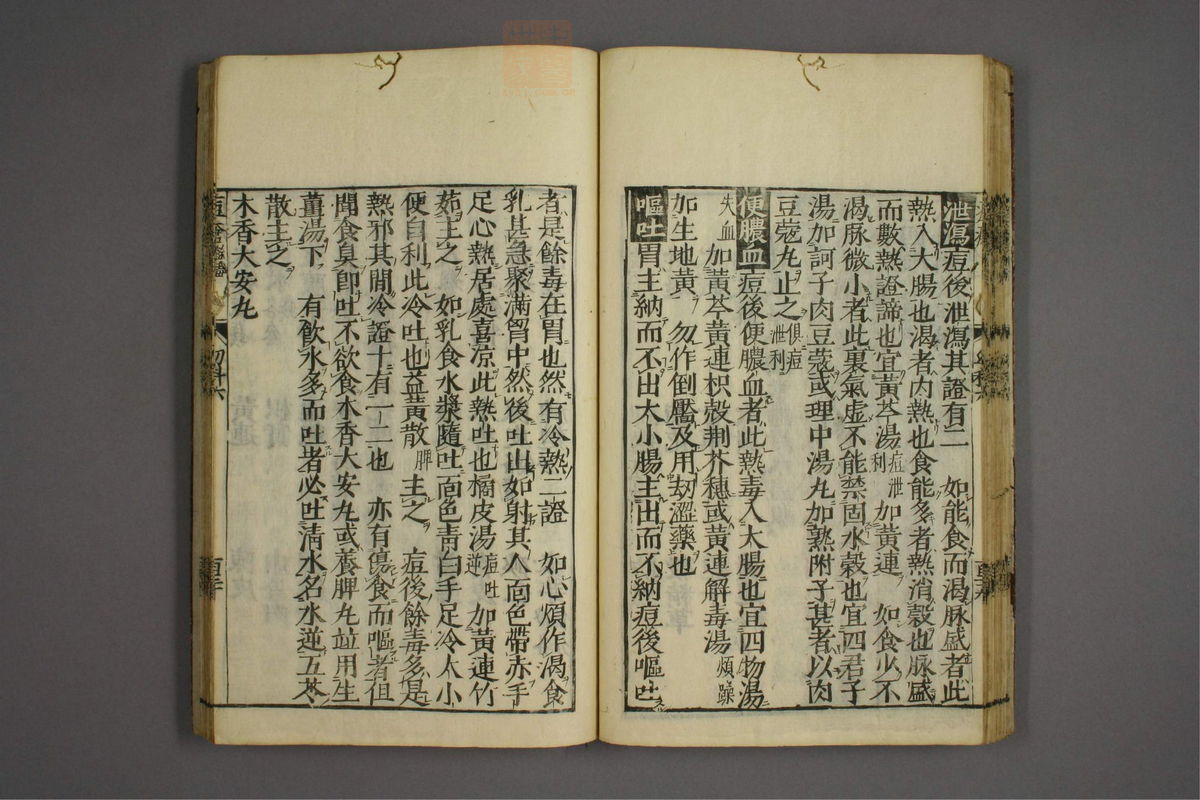 泄瀉痘後泄瀉其證有二 如能食而渴脉盛者此
熱入大腸也渴者内熱也食能多者熱消穀也脉盛
而數熱證諦也宜黃芩湯痘泄利加黃連 如食少不
渴脉微小者此裏氣虚不能禁固水穀也宜四君子
湯加訶子肉豆蔻或理中湯丸加熟附子甚者以肉
豆蔻丸止之俱痘泄利
便膿血痘後便膿血者此熱毒入大腸也宜四物湯
失血加黃芩黃連枳殼荆芥穗或黃連解毒湯煩躁
加生地黃 勿作倒靨及用刼澀藥也
嘔吐胃主納而不出大小腸主出而不納痘後嘔吐
者是餘毒在胃也然有冷熱二證 如心煩作渴食
乳甚急聚滿胃中然後吐出如射其人面色帶赤手
足心熱居處喜凉此熱吐也橘皮湯痘吐逆加黃連竹
茹主之 如乳食水漿隨吐面色青白手足冷大小
便自利此冷吐也益黃散脾主之 痘後餘毒多是
熱邪其間冷證十有一二也 亦有傷食而嘔者但
聞食臭卽吐不欲食木香大安丸或養脾丸竝用生
薑湯下 有飲水多而吐者必吐清水名水逆五苓
散主之
木香大安丸